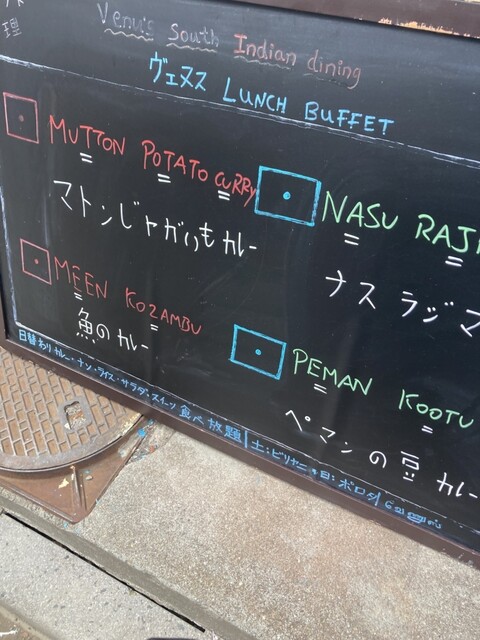 理
Venu's South Indian dining
ヴェヌス LUNCH BUFFET
MUTTON POTATO CURRY
マトンじゃがいもカレー
NASU RAJ
ナス ラジマ
MEEN KOZAMBU
魚のカレー
PEMAN KOOTU
ペマンの豆カレー
日替わりカレー・ナン・ライス・サラダ・スイーツ食べ放題 | 土:ビリヤニ 日:ポロタ